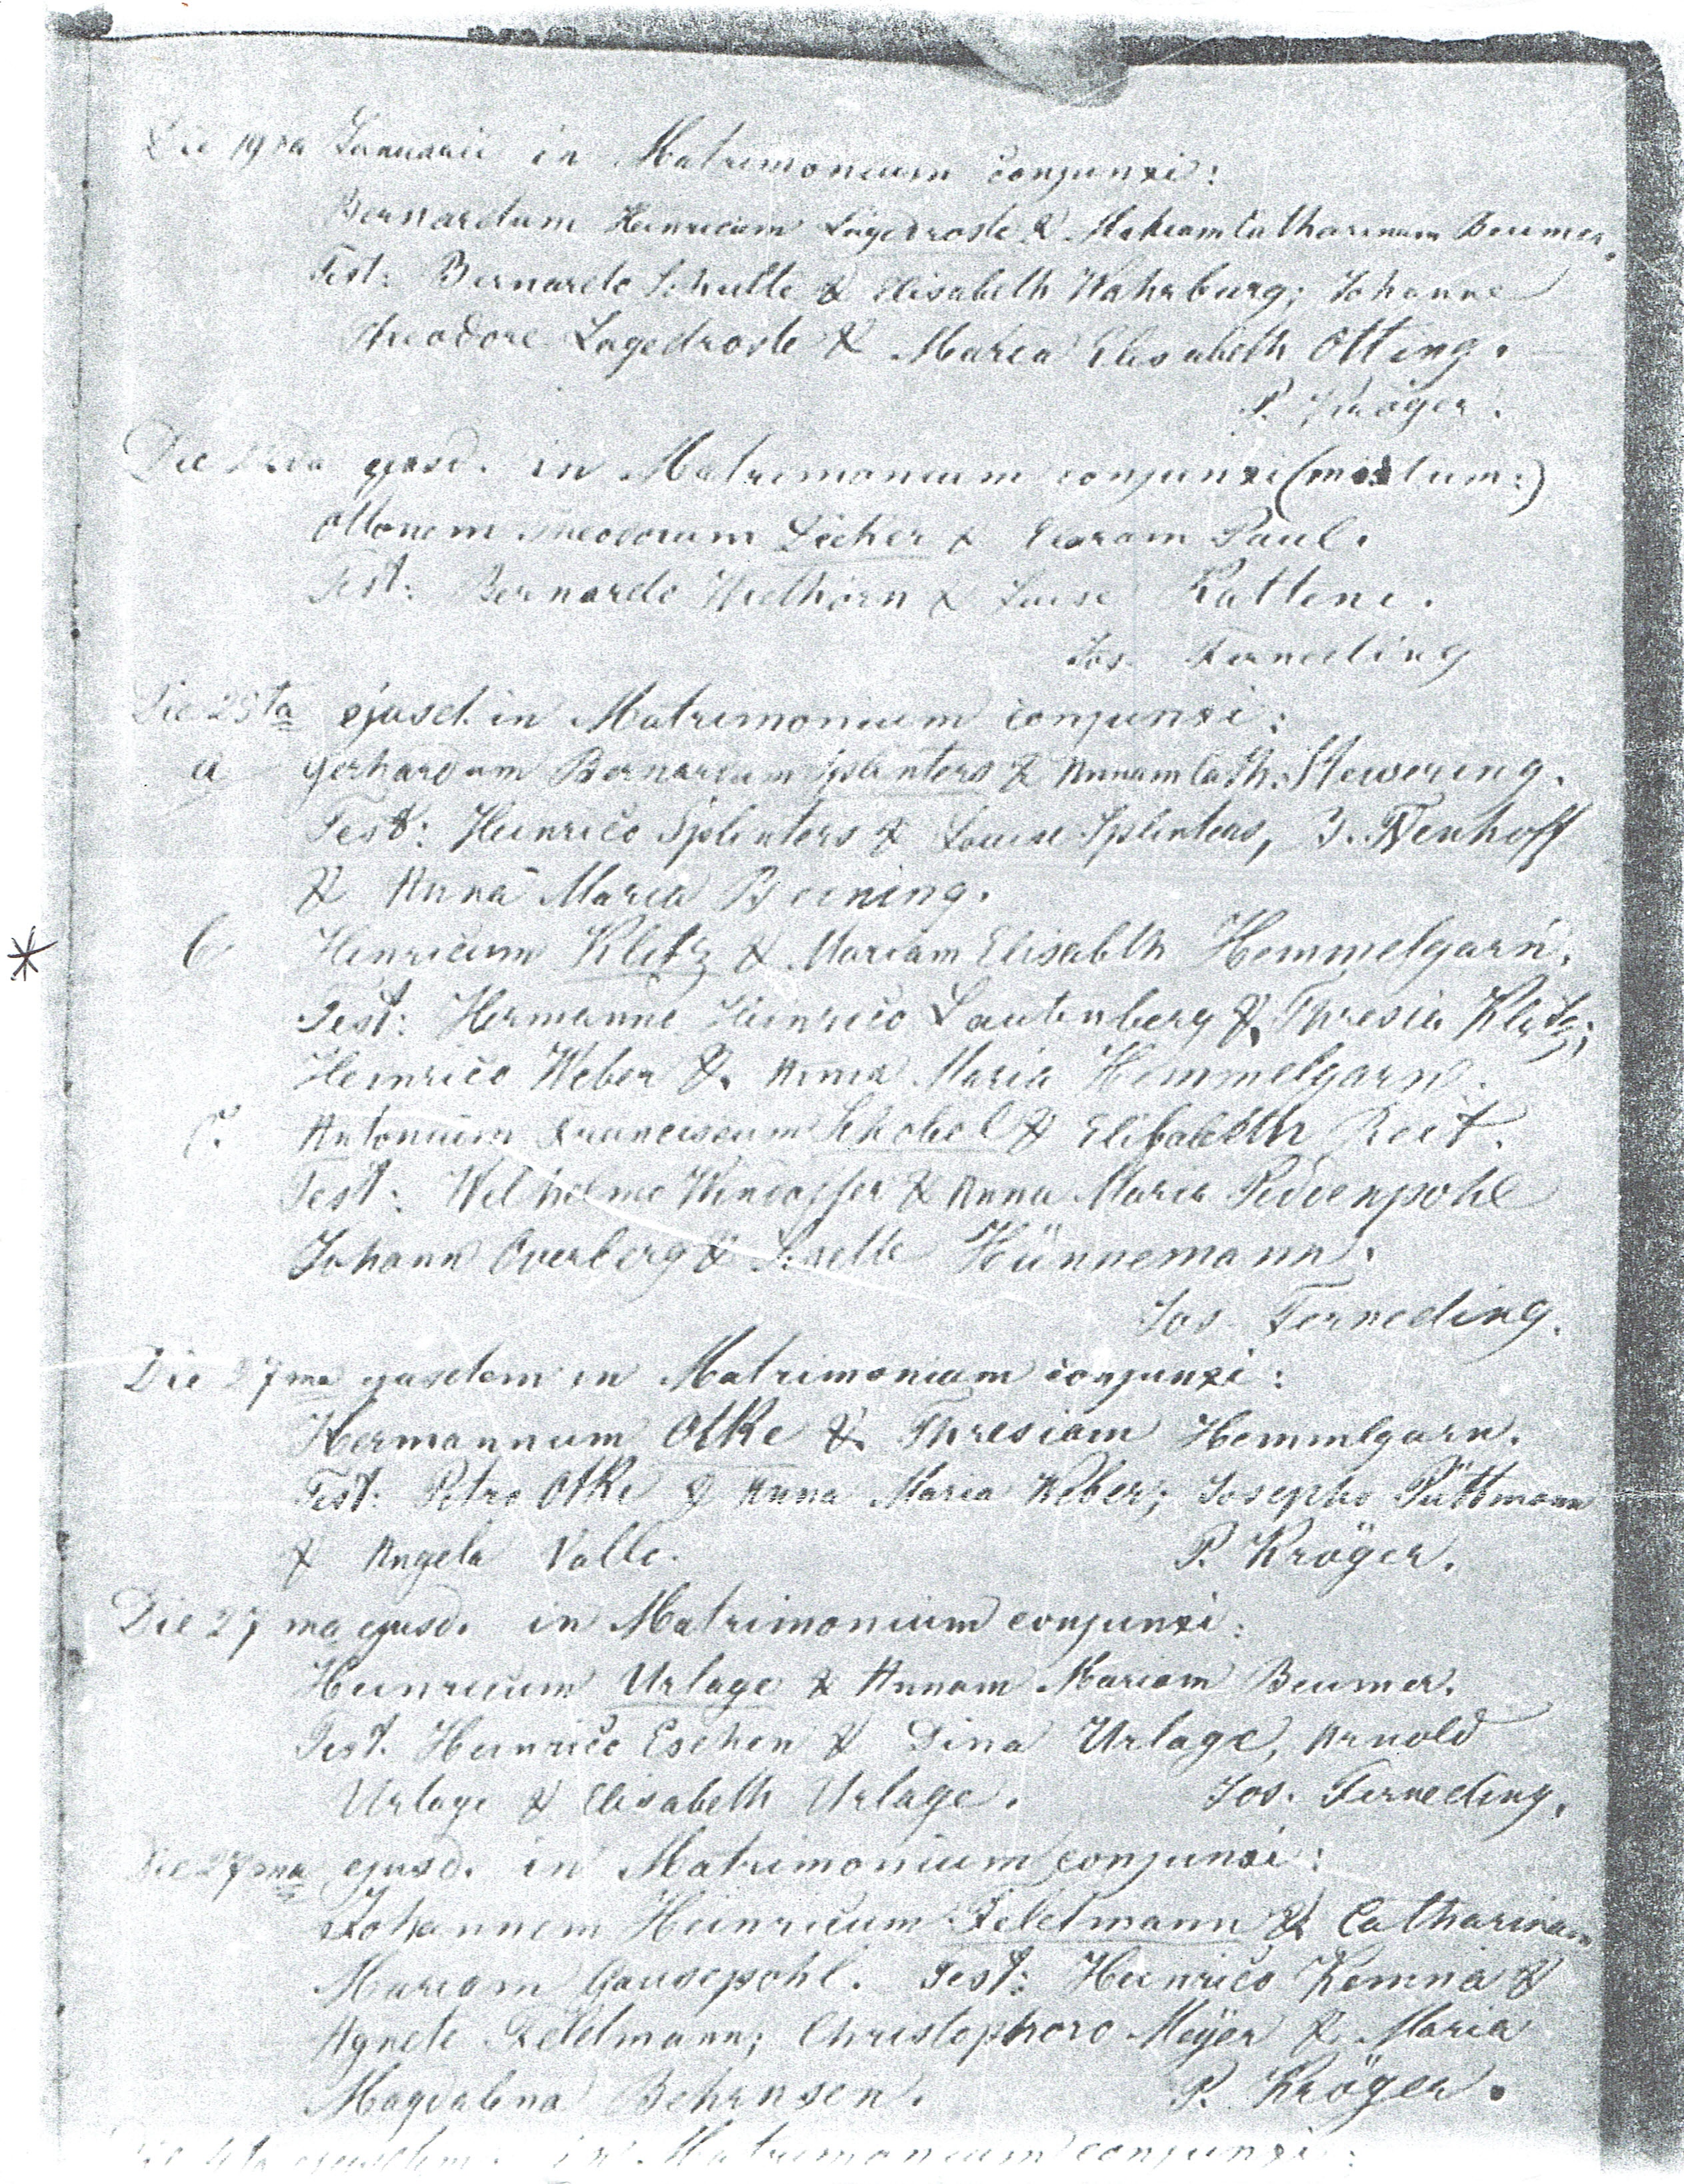 Die 19na Januarii in Matrimonium conjunxi:
Bernardum Heinricum Lagedroste & Mariam Catharinam Beumer.
Test: Bernardo Schulte & Elisabeth Wahrburg; Johanne
Theodore Lagedroste & Maria Elisabeth Otting.
P. Kröger.
Die ejusd. in Matrimonium conjunxi (mixtum:)
Ottonem Theodorum & Paul.
Test: Bernardo Wielhorn & Luise Rattene.
Jos. Ferneding
Die 25ta ejusd. in Matrimonium conjunxi:
a Gerhardum Bernardum Splinters & Annam Cath. Stewering.
Test: Heinrico Splinters & Louise Splinters, Nenhoff
& Anna Maria Beining.
b Henricum Klitz & Mariam Elisabeth Hemmelgarn.
Test: Hermanno Heinrico Lautenberg & Thresia Klitz;
Heinrico Weber & Anna Maria Hemmelgarn.
c. Antonium Franciscum Schobel & Elisabeth Reit.
Test: Wilhelmo Windoffer & Anna Maria Piddenpohl
Johann Overberg & Lisette Hünnemann.
Jos. Ferneding.
Die 27ma ejusdem in Matrimonium conjunxi:
Hermannum Otke & Thresiam Hemmlgarn.
Test: Petro Otke & Anna Maria Weber; Josepho Püttmann
& Angela Valle. P. Kröger.
Die 27ma ejusd. in Matrimonium conjunxi:
Heinricum Urlage & Annam Mariam Beumer.
Test. Heinrico Eschen & Dina Urlage, Arnold
Urlage & Elisabeth Urlage. Jos. Ferneding.
Die 27ma ejusd. in Matrimonium conjunxi:
Johannem Heinricum Feldmann & Catharinam
Mariam Gausepohl. Test: Heinrico Kemna &
Agnete Feldmann; Christophoro Meÿer & Maria
Magdalena Behrnsen. P. Kröger.
Die ejusdem. in Matrimonium conjunxi: